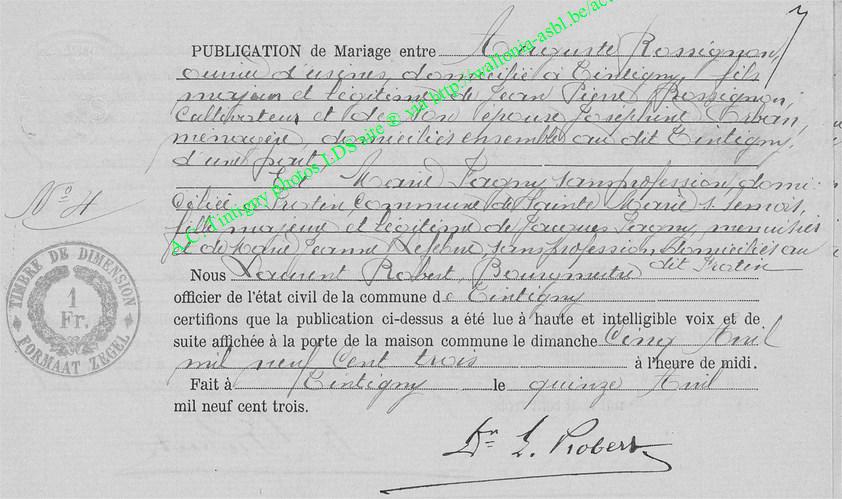 7
PUBLICATION de Mariage entre Auguste Rossignon,
ouvrier d'usines, domicilié à Tintigny, fils
majeur et légitime de Jean Pierre Rossignon,
Cultivateur et de son épouse Joséphine
ménagère, domiciliés ensemble au dit Tintigny,
d'une part
Et Marie Fagny, sans profession, domi-
ciliée Fratin, Commune de Sainte Marie s. Semois,
fille majeure et légitime de Jacques Fagny, menuisier
et de Marie Jeanne Lefebvre, sans profession domiciliés au
dit Fratin
Nous Laurent Robert, Bourgmestre
officier de l'état civil de la commune de Tintigny
certifions que la publication ci-dessus a été lue à haute et intelligible voix et de
suite affichée à la porte de la maison commune le dimanche Cinq Avril
mil neuf cent trois à l'heure de midi.
Fait à Tintigny le quinze Avril
mil neuf cent trois.
Dr L. Robert
No 4
TIMBRE DE DIMENSION
1
Fr.
FORMAAT ZEGEL
A.C. Tintigny photos LDS site ® via http://wallonia-asbl.be/ac